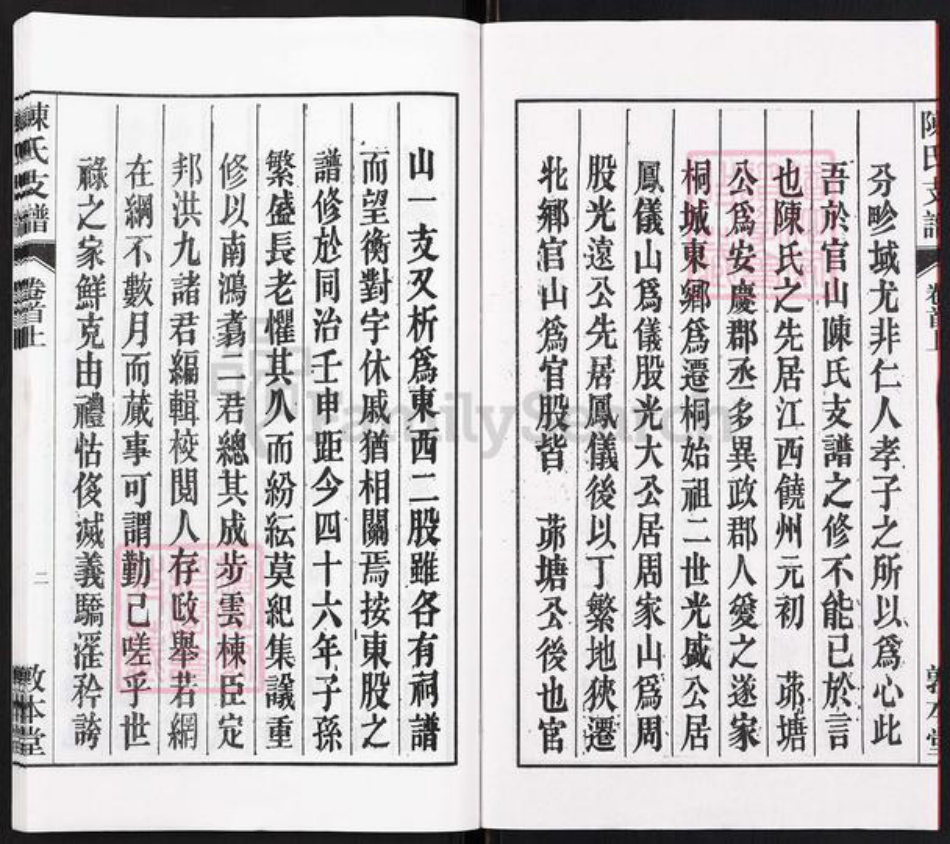 分畛域尤非仁人孝子之所以爲心此
吾於官山陳氏支譜之修不能已於言
也陳氏之先居江西饒州元初　茆塘
公爲安慶郡丞多異政郡人愛之遂家
桐城東鄉爲遷桐始祖二世光盛公居
鳳儀山爲儀股光大公居周家山爲周
股光遠公先居鳳儀後以丁繁地狹遷
北鄉官山爲官股皆　茆塘公後也官
陳氏支譜
卷首上
敦本堂
山一支又析爲東西二股雖各有祠譜
而望衡對宇休戚猶相關焉按東股之
譜修於同治壬申距今四十六年子孫
繁盛長老懼其久而紛紜莫紀集議重
修以南鴻翥二君總其成步雲棟臣定
邦洪九諸君編輯校閱人存政舉若網
在綱不數月而蕆事可謂勤已嗟乎世
祿之家鮮克由禮怙侈滅義驕淫矜誇
陳氏支譜
卷首上
二
敦本堂
FamilySearch